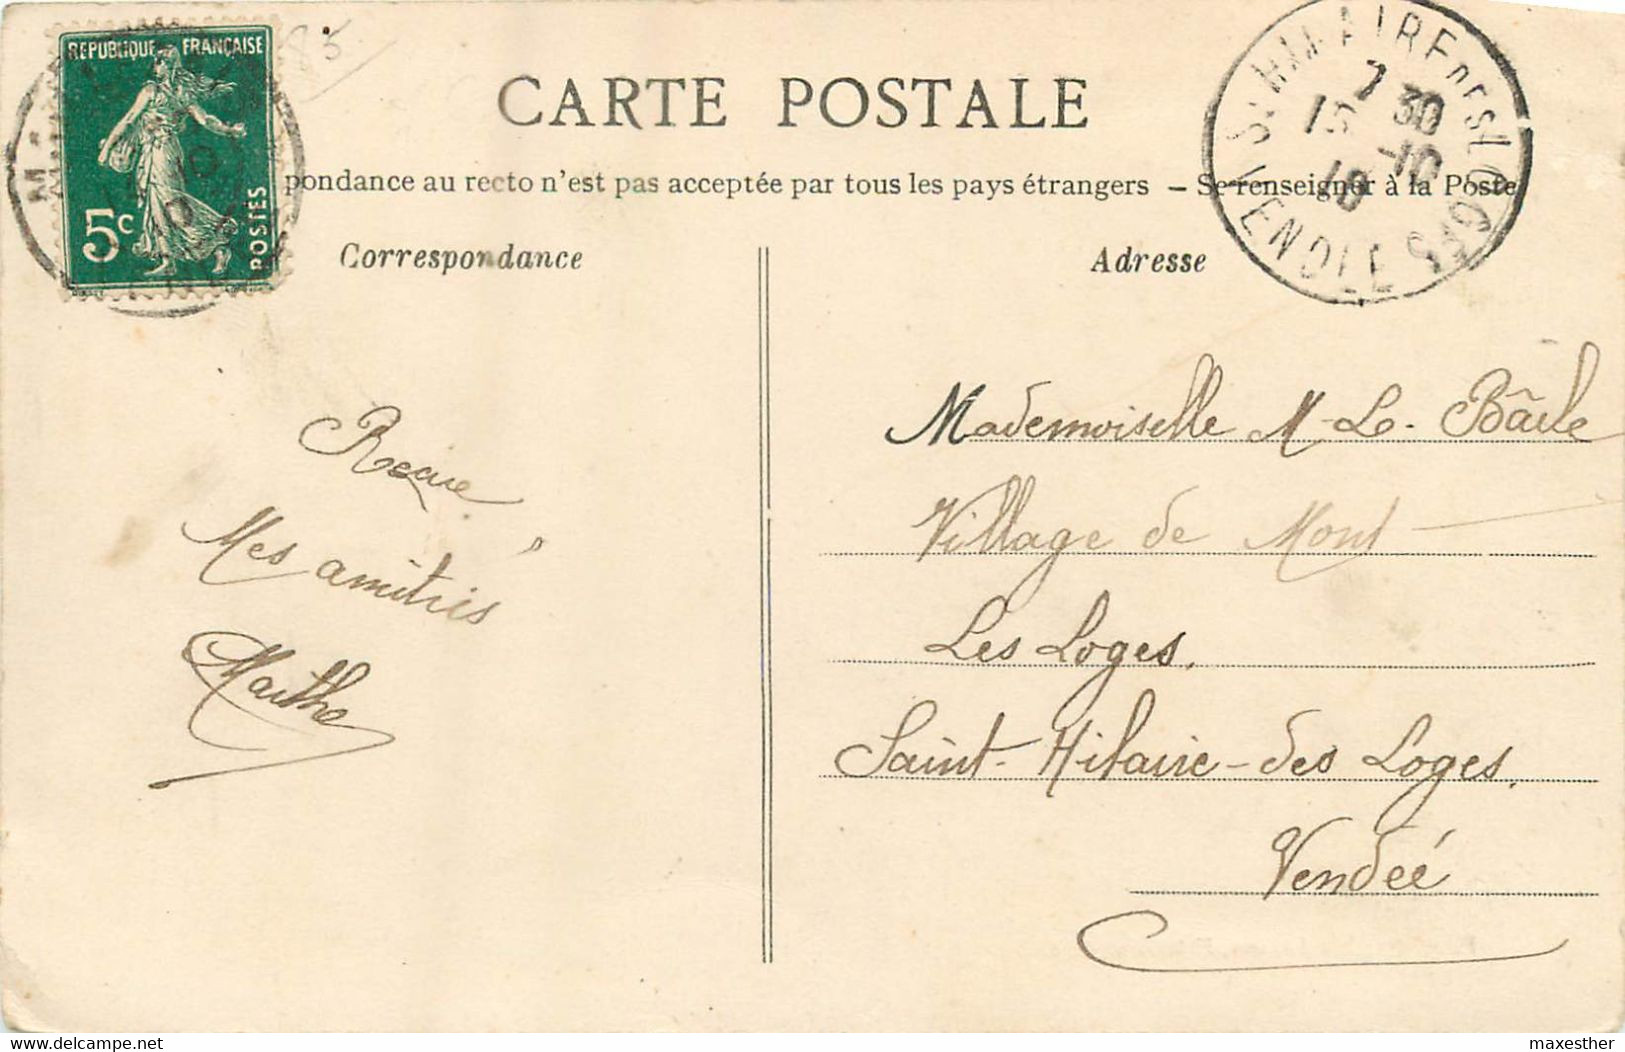 REPUBLIQUE FRANÇAISE
5c
POSTES
85
CARTE POSTALE
pondance au recto n'est pas acceptée par tous les pays étrangers – Se renseigner à la Poste
ST HILAIRE DES LOGES
VENDÉE
7 30
10
Correspondance
Adresse
Reçue
Mes amitiés
Marthe
Mademoiselle M-L. Bâcle
Village de Mont
Les Loges.
Saint-Hilaire-des Loges.
Vendée
www.delcampe.net
maxesther